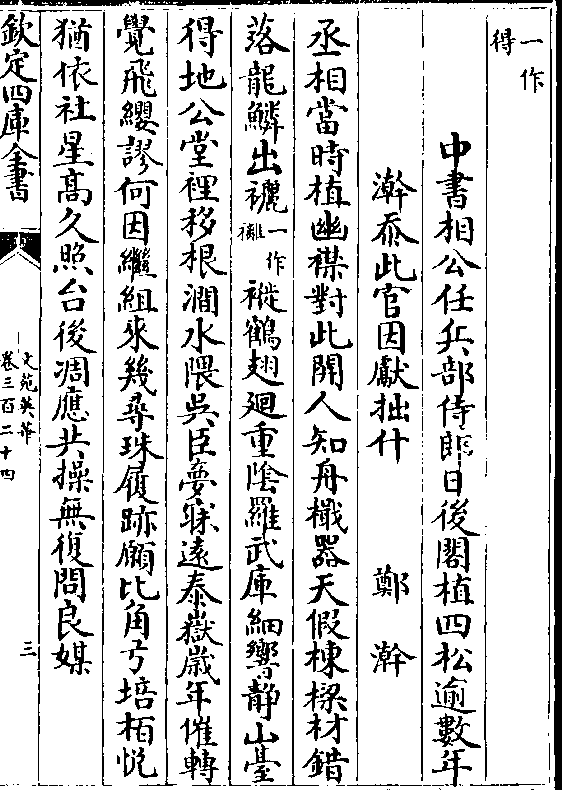 一作
得
中書相公任兵部侍郎日後閣植四松逾數年
澣忝此官因獻拙什 鄭澣
丞相當時植幽襟對此開人知舟檝器天假棟樑材錯
落龍鱗出襹一作褵褷鶴翅廻重陰羅武庫細響静山臺
得地公堂裡移根澗水隈吳臣夢寐遠泰嶽歲年催轉
覺飛纓謬何因繼組來幾尋珠履跡願比角弓培栢悦
猶依社星髙久照台後凋應共操無復問良媒
欽定四庫全書
文苑英華
卷三百二十四
三